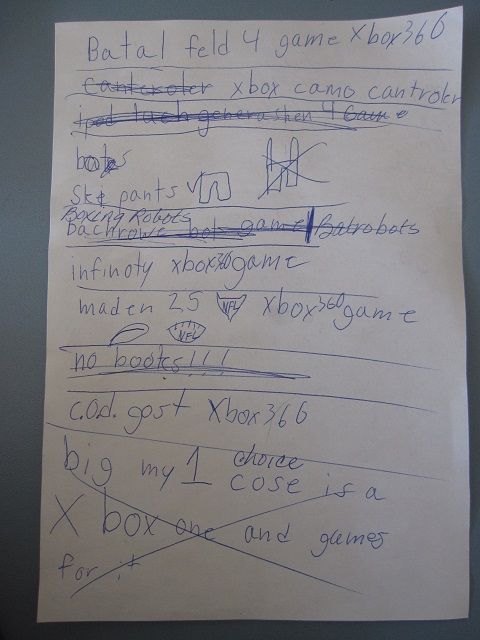 Batal feld 4 game xbox360
cantroler xbox camo cantroler
ipod tuch generashen 4 Game
Ski pants
Boxing Robots
game Batrobots
infinoty xbox360game
maden 25 NFL xbox360game
NFL
no books!!!
c.o.d. gost xbox360
big my 1 choice
cose is a
X box one and games
for it